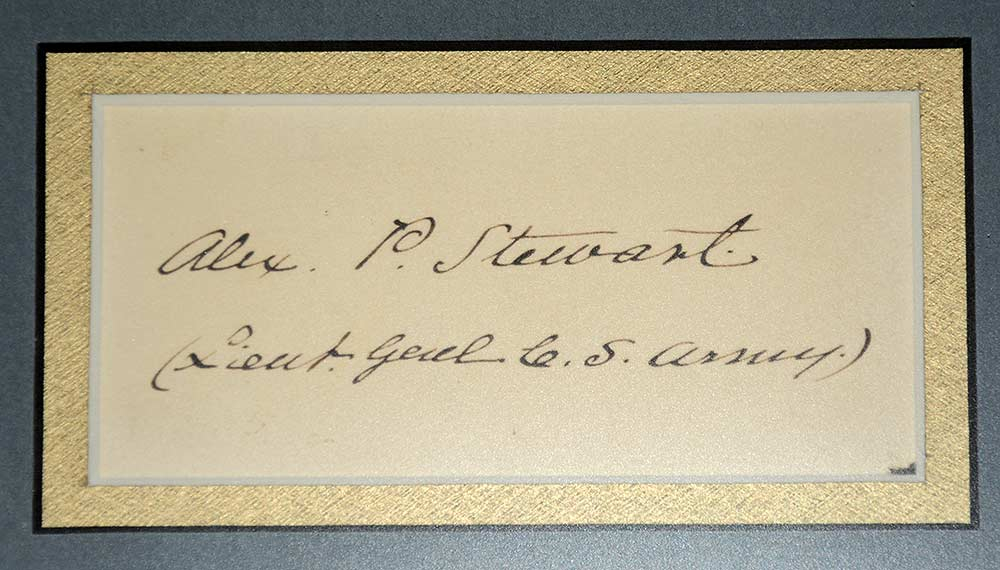 Alex. P. Stewart.
(Lieut. Genl C. S. Army.)